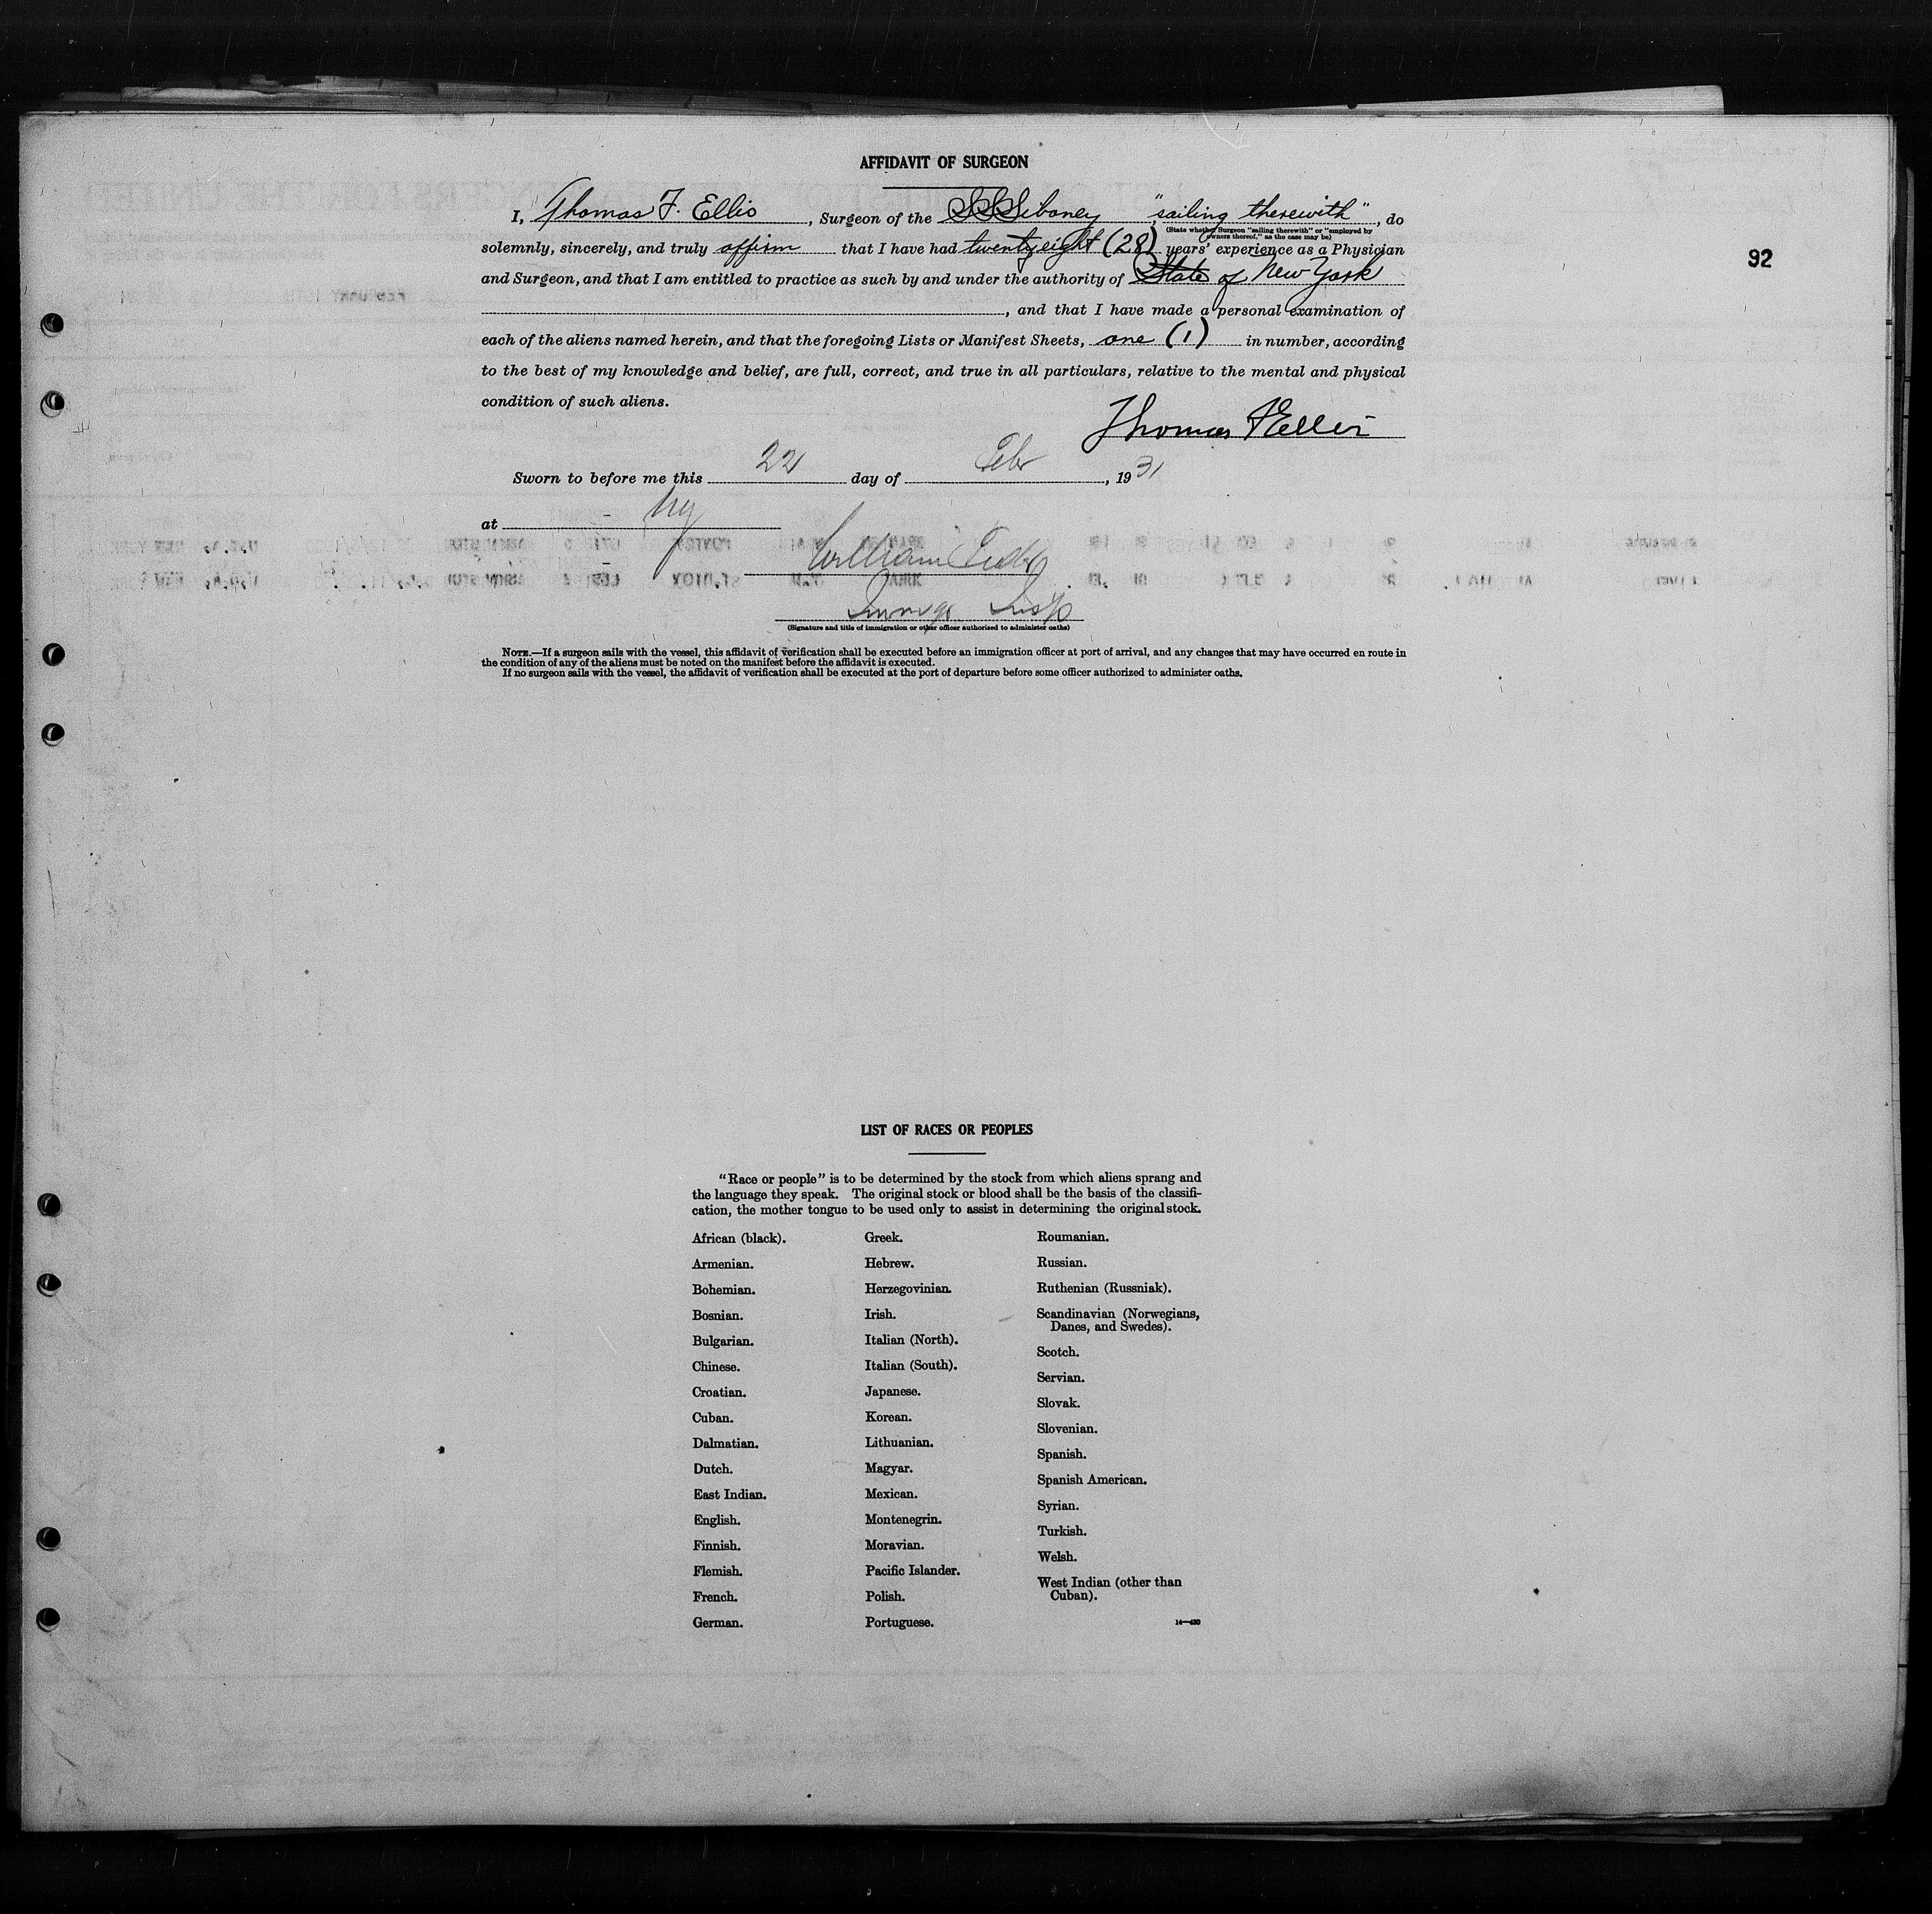 AFFIDAVIT OF SURGEON
I, Thomas F. Ellis, Surgeon of the SS Siboney, "sailing therewith", do
(State whether Surgeon "sailing therewith" or "employed by
owners thereof," as the case may be)
solemnly, sincerely, and truly affirm that I have had twenty eight (28) years' experience as a Physician
and Surgeon, and that I am entitled to practice as such by and under the authority of State of New York
, and that I have made a personal examination of
92
each of the aliens named herein, and that the foregoing Lists or Manifest Sheets, one (1) in number, according
to the best of my knowledge and belief, are full, correct, and true in all particulars, relative to the mental and physical
condition of such aliens.
Thomas F Ellis
Sworn to before me this 22 day of Feb, 1931
at NY
William
Immig. Insp
(Signature and title of immigration or other officer authorized to administer oaths)
NOTE.—If a surgeon sails with the vessel, this affidavit of verification shall be executed before an immigration officer at port of arrival, and any changes that may have occurred en route in
the condition of any of the aliens must be noted on the manifest before the affidavit is executed.
If no surgeon sails with the vessel, the affidavit of verification shall be executed at the port of departure before some officer authorized to administer oaths.
LIST OF RACES OR PEOPLES
"Race or people" is to be determined by the stock from which aliens sprang and
the language they speak. The original stock or blood shall be the basis of the classifi-
cation, the mother tongue to be used only to assist in determining the original stock.
African (black).
Armenian.
Bohemian.
Bosnian.
Bulgarian.
Chinese.
Croatian.
Cuban.
Dalmatian.
Dutch.
East Indian.
English.
Finnish.
Flemish.
French.
German.
Greek.
Hebrew.
Herzegovinian.
Irish.
Italian (North).
Italian (South).
Japanese.
Korean.
Lithuanian.
Magyar.
Mexican.
Montenegrin.
Moravian.
Pacific Islander.
Polish.
Portuguese.
Roumanian.
Russian.
Ruthenian (Russniak).
Scandinavian (Norwegians,
Danes, and Swedes).
Scotch.
Servian.
Slovak.
Slovenian.
Spanish.
Spanish American.
Syrian.
Turkish.
Welsh.
West Indian (other than
Cuban).